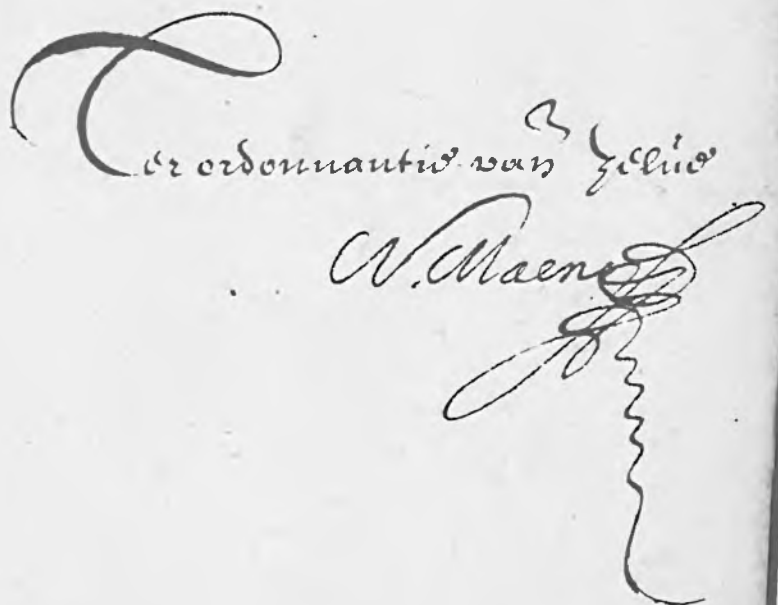 Ter ordonnantie van zelue
W. Maen